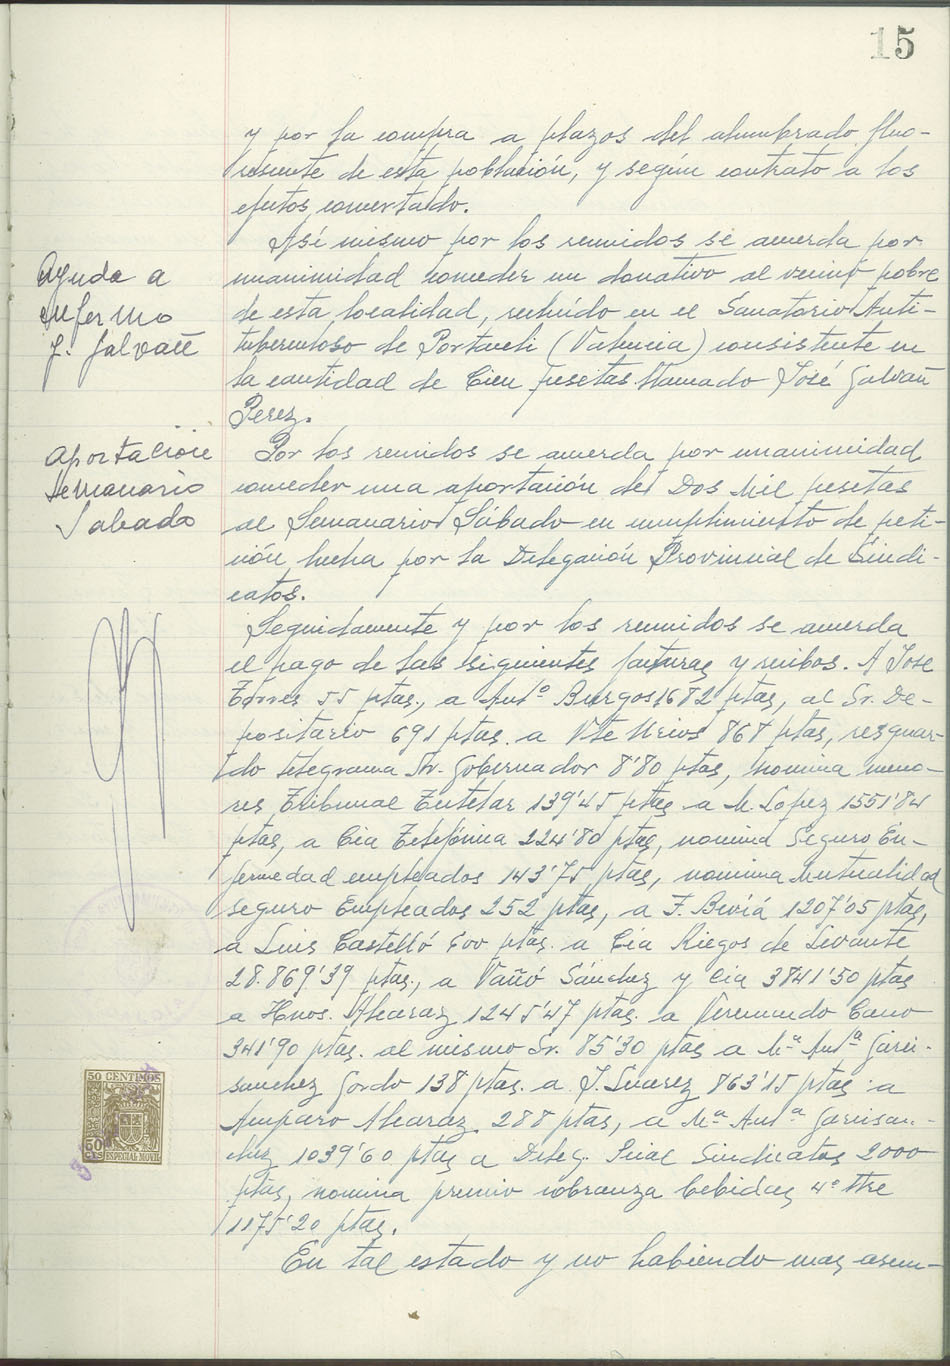 15
y por la compra a plazos del alumbrado fluo-
rescente de esta población, y según contrato a los
efectos concertado.
Así mismo por los reunidos se acuerda por
Ayuda a
enfermo
J. Galvañ
unanimidad conceder un donativo al vecino pobre
de esta localidad, recluído en el Sanatorio Anti-
tuberculoso de Portaceli (Valencia) consistente en
la cantidad de Cien pesetas llamado José Galvañ
Perez.
Aportación
Semanario
Sabado
Por los reunidos se acuerda por unanimidad
conceder una aportación de Dos Mil pesetas
al Semanario Sábado en cumplimiento de peti-
ción hecha por la Delegación Provincial de Sindi-
catos.
Seguidamente y por los reunidos se acuerda
el pago de las siguientes facturas y recibos. A Jose
Torres 55 ptas., a Antº Burgos 1682 ptas, al Sr. De-
positario 691 ptas. a Vte Urios 868 ptas, resguar-
do telegrama Sr. Gobernador 8'80 ptas, nomina meno-
res Tribunal Tutelar 139'45 ptas a M. Lopez 1551'84
ptas, a Cia Telefónica 224'80 ptas, nomina Seguro En-
fermedad empleados 143'75 ptas, nomina Mutualidad
seguro Empleados 252 ptas, a F. Beviá 1207'05 ptas,
a Luis Castelló 600 ptas. a Cia Riegos de Levante
28.869'39 ptas., a Vañó Sánchez y Cia 3841'50 ptas
a Hnos. Alcaraz 1245'47 ptas. a Veremundo Cano
341'90 ptas. al mismo Sr. 85'30 ptas a Mª Antª Garci-
sanchez Gordo 138 ptas. a J. Suarez 863'15 ptas a
Amparo Alcaraz 288 ptas, a Mª Antª Garcisan-
chez 1039'60 ptas a Deleg. Pcial Sindicatos 2000
ptas, nomina premio cobranza bebidas 4º Ttre
1175'20 ptas.
En tal estado y no habiendo mas asun-
50 CENTIMOS
50
CTS
ESPECIAL MOVIL